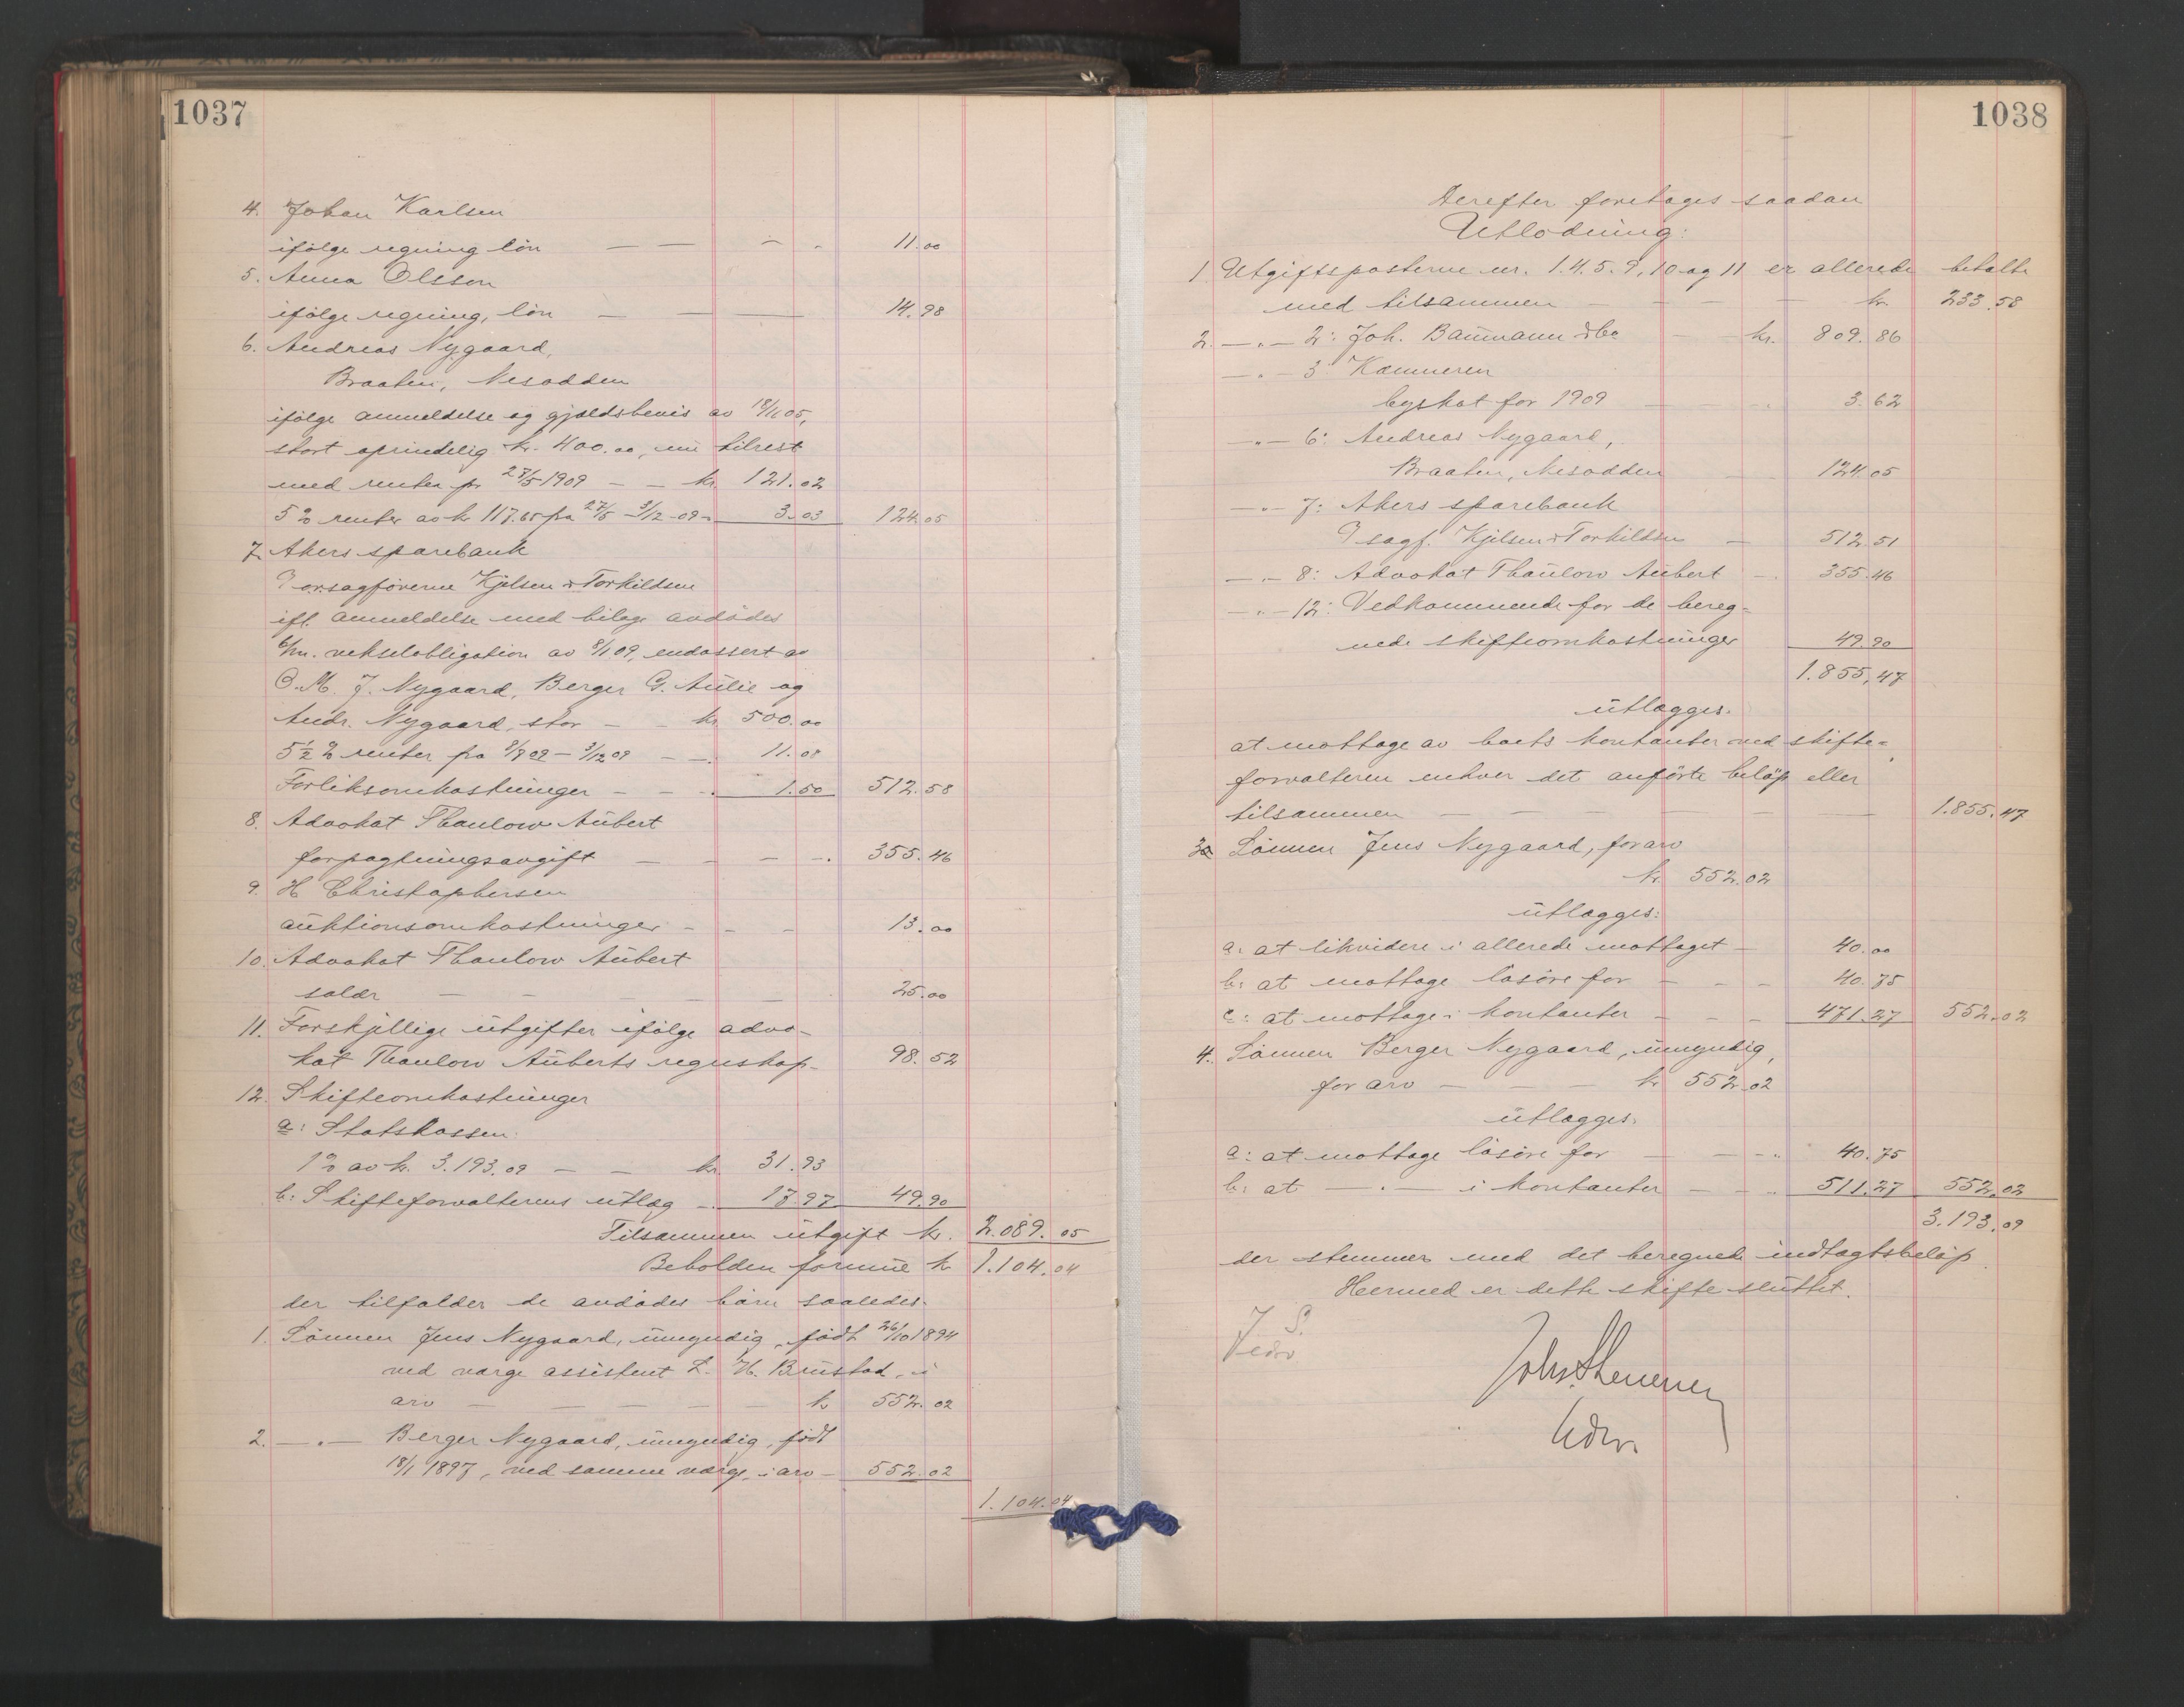 1037
4. Johan Karlsen
ifølge regning løn — — - - 11.00
5. Anna Olsson
ifølge regning, løn — — — 14.98
6. Andreas Nygaard,
Braaten, Nesodden
ifølge anmeldelse og gjældsbevis av 18/11 05,
stort oprindelig kr. 400.00, nu tilrest
med renter pr 27/5 1909 - - kr. 121.02
5 % renter av kr 117.65 fra 27/5 - 3/12 - 09 - 3.03 124.05
7. Akers sparebank
Oversagførerne Kjelsen & Torkildsen
ifl. anmeldelse med bilag avdødes
6/m. vekselobligation av 8/1 09, endossert av
O. M. J. Nygaard, Berger G. Aulie og
Andr. Nygaard, stor - - kr. 500.00
5 1/2 % renter fra 9/7 09 - 3/12 09 - - 11.08
Forliksomkostninger - - - 1.50 512.58
8. Advokat Thaulow Aubert
forpagtningsavgift — - - - 355.46
9. H Christophersen
auktionsomkostninger - - - 13.00
10. Advokat Thaulow Aubert
salær — - - - — 25.00
11. Forskjellige utgifter ifølge advo-
kat Thaulow Auberts regnskap - 98.52
12. Skifteomkostninger
a: Statskassen:
1 % av kr. 3.193.09 - - kr 31.93
b: Skifteforvalterens utlæg - 17.97 49.90
Tilsammen utgift kr. 2.089.05
Beholden formue kr 1.104.04
der tilfalder de avdødes børn saaledes:
1. Sønnen Jens Nygaard, umyndig, født 26/10 1894
ved værge assistent L. H. Brustad, i
arv — — — — — kr 552.02
2. —„— Berger Nygaard, umyndig, født
18/1 1897, ved samme værge, i arv - 552.02
1.104.04
1038
Derefter foretages saadan
Utlodning:
1 Utgiftsposterne nr. 1.4.5.9,10 og 11 er allerede betalte
med tilsammen — - - — kr. 233.58
2. —„— 2: Joh. Baumann & Co - - kr. 809.86
—„— 3: Kæmneren
byskat for 1909 - - - 3.62
—„— 6: Andreas Nygaard,
Braaten, Nesodden - 124.05
—„— 7: Akers sparebank
Osagf. Kjelsen & Torkildsen - 512.51
—„— 8: Advokat Thaulow Aubert - 355.46
—„— 12: Vedkommende for de bereg-
nede skifteomkostninger 49.90
1.855.47
utlægges:
at motta­ge av boets kontanter ved skifte-
forvalteren enhver det anførte beløp eller
tilsammen — — — — — 1.855.47
3. Sønnen Jens Nygaard, for arv
kr. 552.02
utlægges:
a: at likvidere i allerede mottaget - 40.00
b: at mottage løsøre for - - - 40.75
c: at mottage i kontanter - - - 471.27 552.02
4. Sønnen Berger Nygaard, umyndig,
for arv — — - kr 552.02
utlægges:
a: at mottage løsøre for - - - 40.75
b: at —„— i kontanter - - 511.27 552.02
3.193.09
der stemmer med det beregnede indtægtsbeløp.
Hermed er dette skifte sluttet.
J. S.